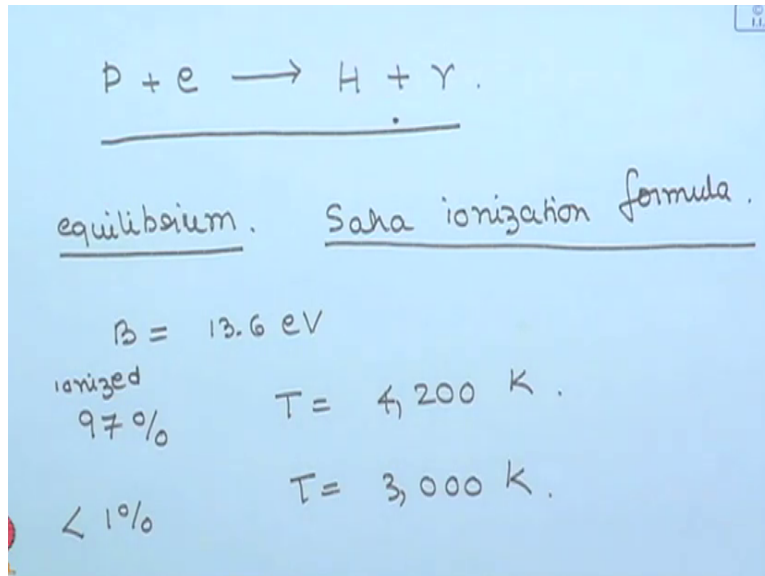 P + e → H + γ.
equilibrium. Saha ionization formula.
B = 13.6 eV
ionized
97% T = 4,200 K.
< 1% T = 3,000 K.